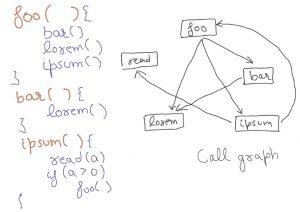 foo( ){
bar()
lorem()
ipsum()
}
bar( ){
lorem()
}
ipsum( ){
read(a)
if(a>0)
foo()
{
foo
read
bar
lorem
ipsum
Call graph